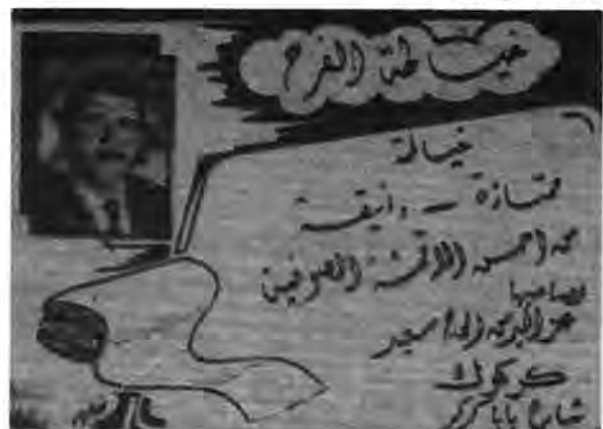 خياطة الفرح
خياطة
ممتازة - وأنيقة
من احسن الاقمشة
لصاحبها
عز الدين الحاج سعيد
كركوك
شارع بابا كركر